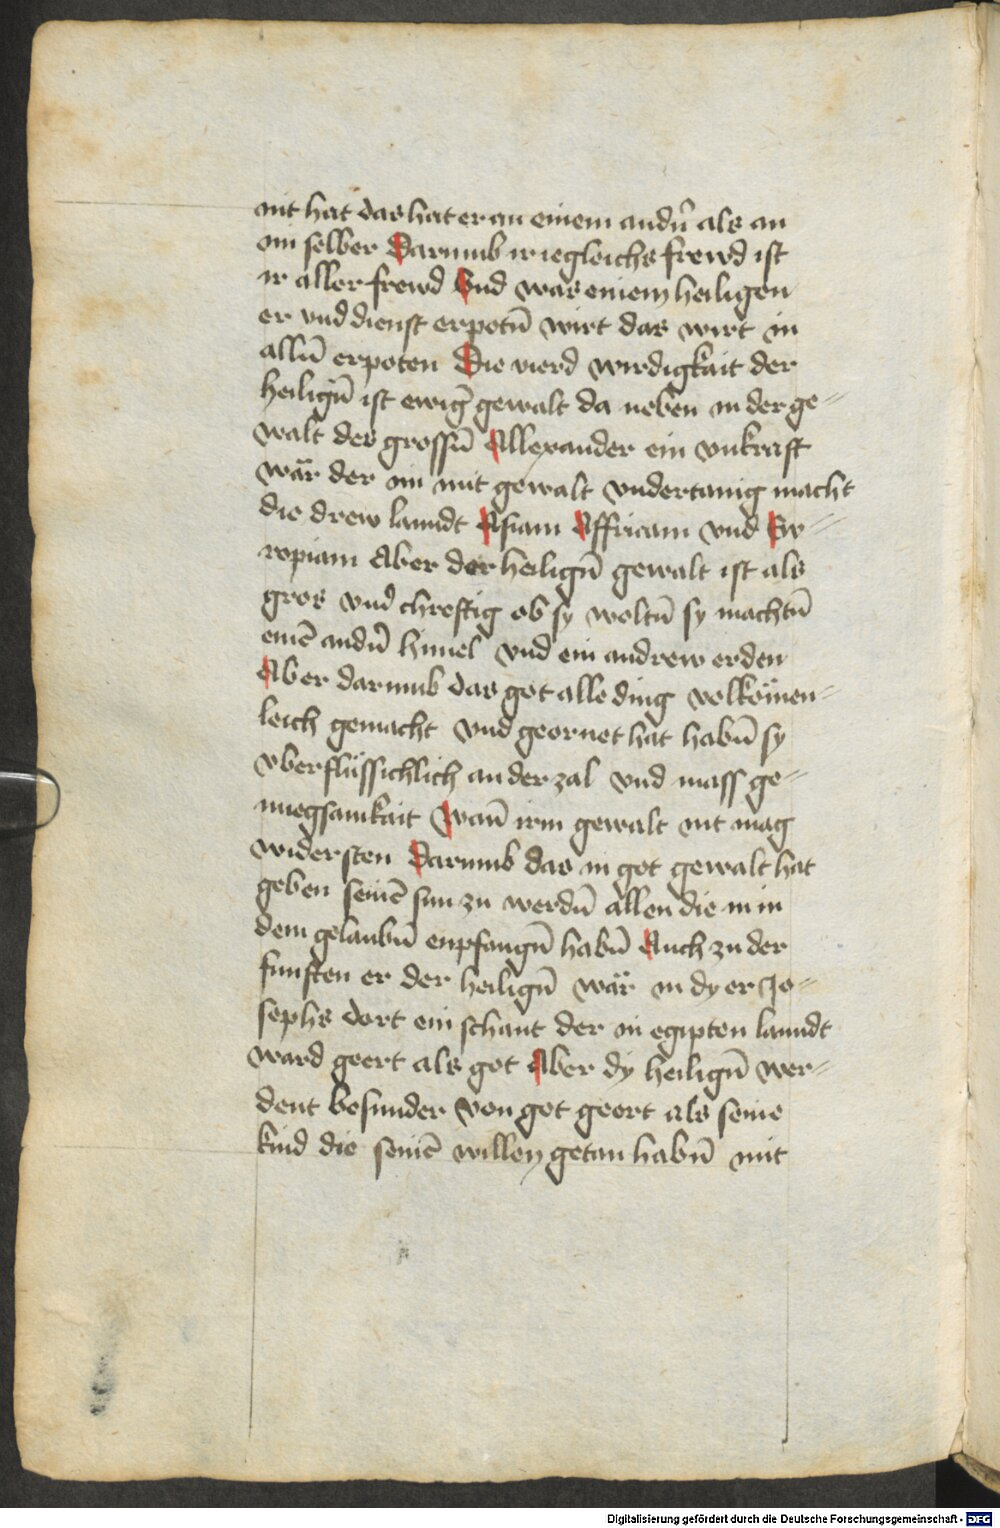 nit hat das hat er an einem andn̄ als an
im selber Darumb ir iegleichs frewd ist
ir aller frewd Vnd was einem heiligen
er vnd dienst erpotn̄ wirt das wirt in
alln̄ erpoten Die vierd wirdigkait der
heilign̄ ist ewiḡ gewalt da neben in der ge-
walt des grossn̄ Allexander ein vnkraft
wär der im mit gewalt vndertanig macht
die drew lanndt Asiam Affricam vnd Ew-
ropiam Aber der heilign̄ gewalt ist als
gros vnd chreftig ob sy woltn̄ sy machtn̄
einē andn̄ himel vnd ein andrew erden
Aber darumb das got alle ding volkömen-
leich gemacht vnd geornet hat habn̄ sy
vberflüssichlich an der zal vnd mass ge-
nuegsamkait Wan̄ irm gewalt nit mag
widersten Darumb das in got gewalt hat
geben seinē sun zu werdn̄ allen die in in
dem gelaubn̄ enpfangn̄ habn̄ Auch zu der
funften er der heilign̄ wär in dy er Jo-
sephs dort ein schant der in egipten lanndt
ward geert als got Aber dy heilign̄ wer-
dent besunder von got geert als seine
kind die seinē willen getan habn̄ mit
Digitalisierung gefördert durch die Deutsche Forschungsgemeinschaft - DFG